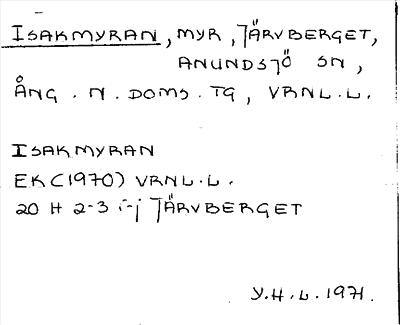 ISAKMYRAN, MYR, JÄRVBERGET,
ANUNDSJÖ SN,
ÅNG. N. DOMS. TG, VRNL.L.
ISAKMYRAN
EK(1970) VRNL.L.
20 H 2-3 i-j JÄRVBERGET
Y.H.L. 1971.